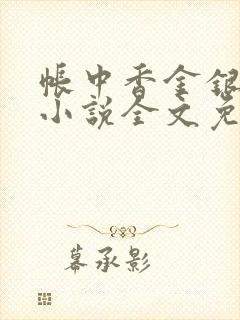 帐中香金银
小说全文免
幕承影